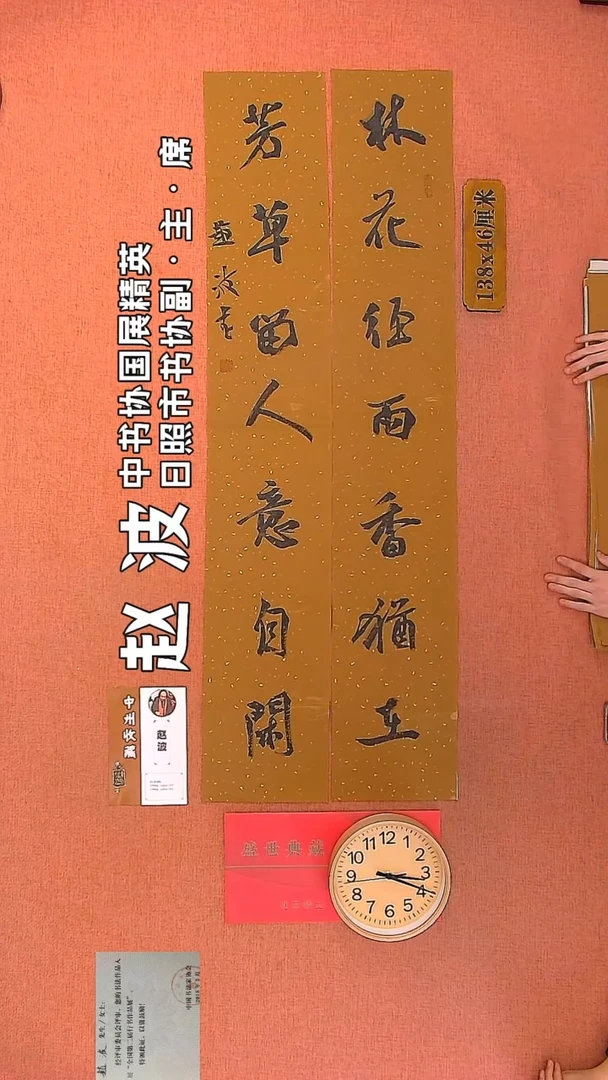 林花經雨香猶在
芳草留人意自閑
趙波書
138x46厘米
中书协国展精英
日照市书协副·主·席
赵波
盛世典藏
12
1
2
3
4
5
6
7
8
9
10
11
赵波 先生/女士:
经评审委员会评审,您的书法作品入
展“全国第二届行书作品展”,
特颁此证,以资鼓励!
中国书法家协会